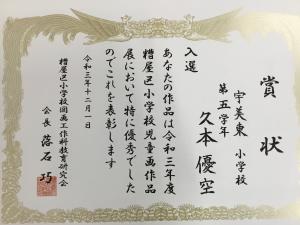 賞状
宇美東 小学校
第五学年
久本優空
入選
あなたの作品は令和三年度
糟屋区小学校児童画作品
展において特に優秀でした
のでこれを表彰します
令和三年十二月一日
糟屋区小学校図画工作科教育研究会
会長 落石 巧